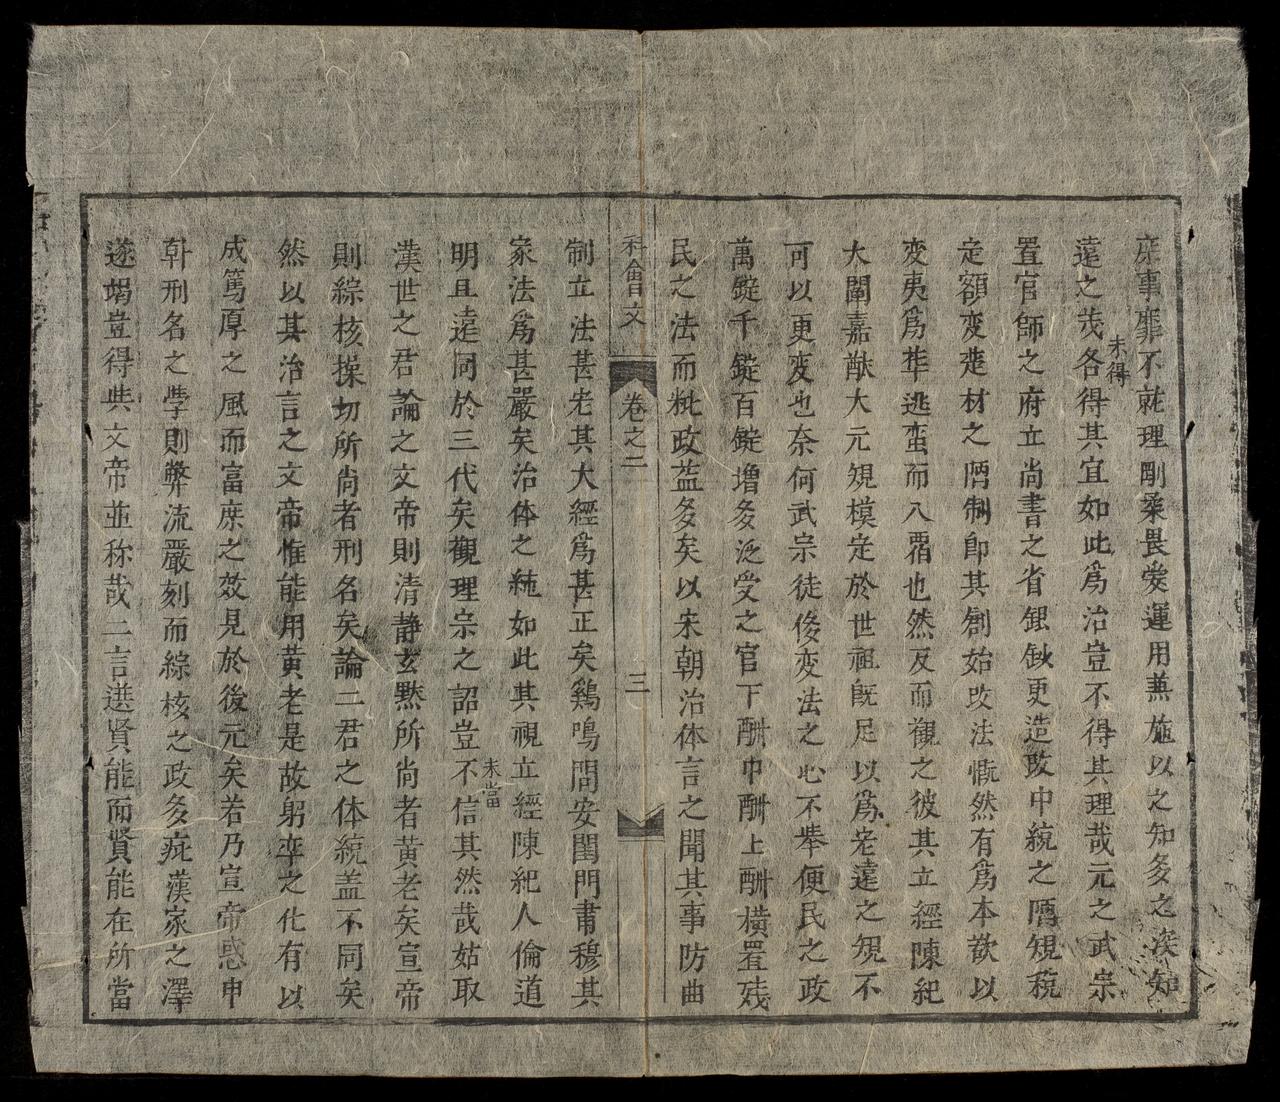 庶事靡不就理剛柔畏愛運用兼施以之知多之
遠之茂各得其宜如此為治豈不得其理哉元之武宗
未得
置官師之府立尚書之省銀鈔更造改中統之曆規稅
定額变楚材之曆制即其創始改法慨然有為本欲以
变夷為華迯蛮而入霫也然反而觀之彼其立經陳紀
大闡嘉猷大元規模定於世祖既足以為老遠之規不
可以更变也奈何武宗徒俊变法之心不舉便民之政
萬錠千錠百錠增多泛受之官下酬中酬上酬橫置残
民之法而粃政益多矣以宋朝治体言之聞其事防曲
科會文 卷之二 三
制立法甚老其大經為甚正矣鷄鳴問安閨門肅穆其
家法為甚嚴矣治体之純如此其視立經陳紀人倫道
明且遠同於三代矣觀理宗之詔豈不信其然哉姑取
未當
漢世之君論之文帝則清静玄默所尚者黄老矣宣帝
則綜核操切所尚者刑名矣論二君之体統盖不同矣
然以其治言之文帝惟能用黄老是故躬率之化有以
成篤厚之風而富庶之效見於後元矣若乃宣帝惑申
韩刑名之學則弊流嚴刻而綜核之政多疵漢家之澤
遂竭豈得與文帝並称哉二言選賢能而賢能在所當